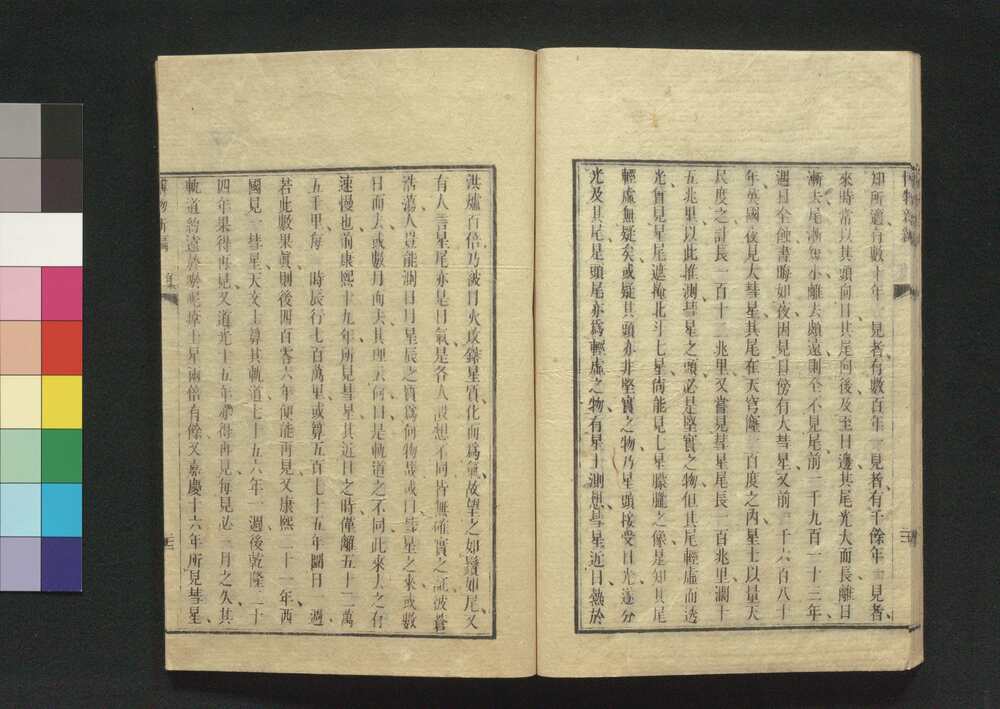 知所適有數十年一見者有數百年一見者有千餘年一見者
來時常以其頭向日其尾向後及至日邊其尾光大而長離日
漸去尾漸短小離去頗遠則全不見尾前一千九百一十三年
週日全蝕晝晦如夜因見日傍有大彗星又前一千六百八十
年英國一夜見大彗星其尾在天穹隆一百度之內星士以量天
尺度之計長一百十二兆里又嘗見彗星尾長一百兆里濶十
五兆里以此推測彗星之頭必是堅實之物但其尾輕虛而透
光曾見星尾遮掩北斗七星尚能見七星朦朧之像是知其尾
輕虛無疑矣或疑其頭亦非堅實之物乃星頭接受日光遂分
光及其尾是頭尾亦爲輕虛之物有星士測想彗星近日熱於
洪爐百倍乃被日火攻鎔星質化而爲氣故望之如鬚如尾又
有人言星尾亦是日氣是各人設想不同皆無確實之証彼蒼
浩蕩人豈能測日月星辰之質爲何物哉或曰彗星之來或數
日而去或數月而去其理云何曰是軌道之不同此來人之有
速慢也前康熙十九年所見彗星其近日之時僅離五十二萬
五千里每一時辰行七百萬里或算五百七十五年闗日一週
若此數果眞則後四百零六年便能再見又康熙二十一年西
國見一彗星天文士算其軌道七十五六年一週後乾隆二十
四年果得再見又道光十五年亦得再見每見必一月之久其
軌道約遠於呢呢摩士星兩倍有餘又嘉慶十六年所見彗星